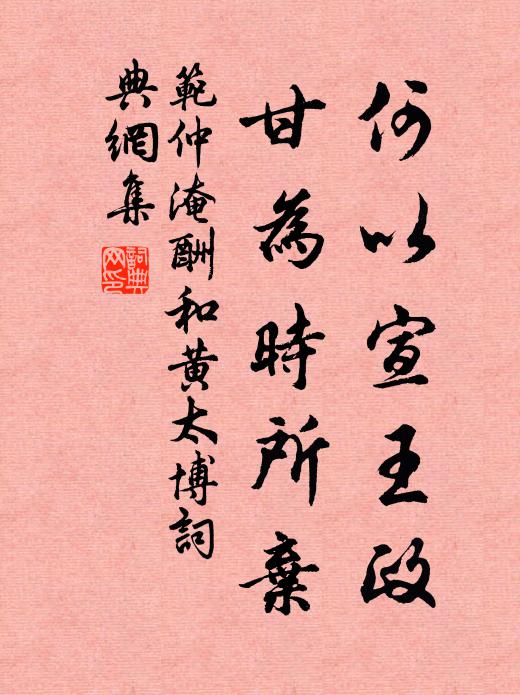 何以宣王政
甘為時所棄
範仲淹酬和黃太博詞
典網集
詞典網印